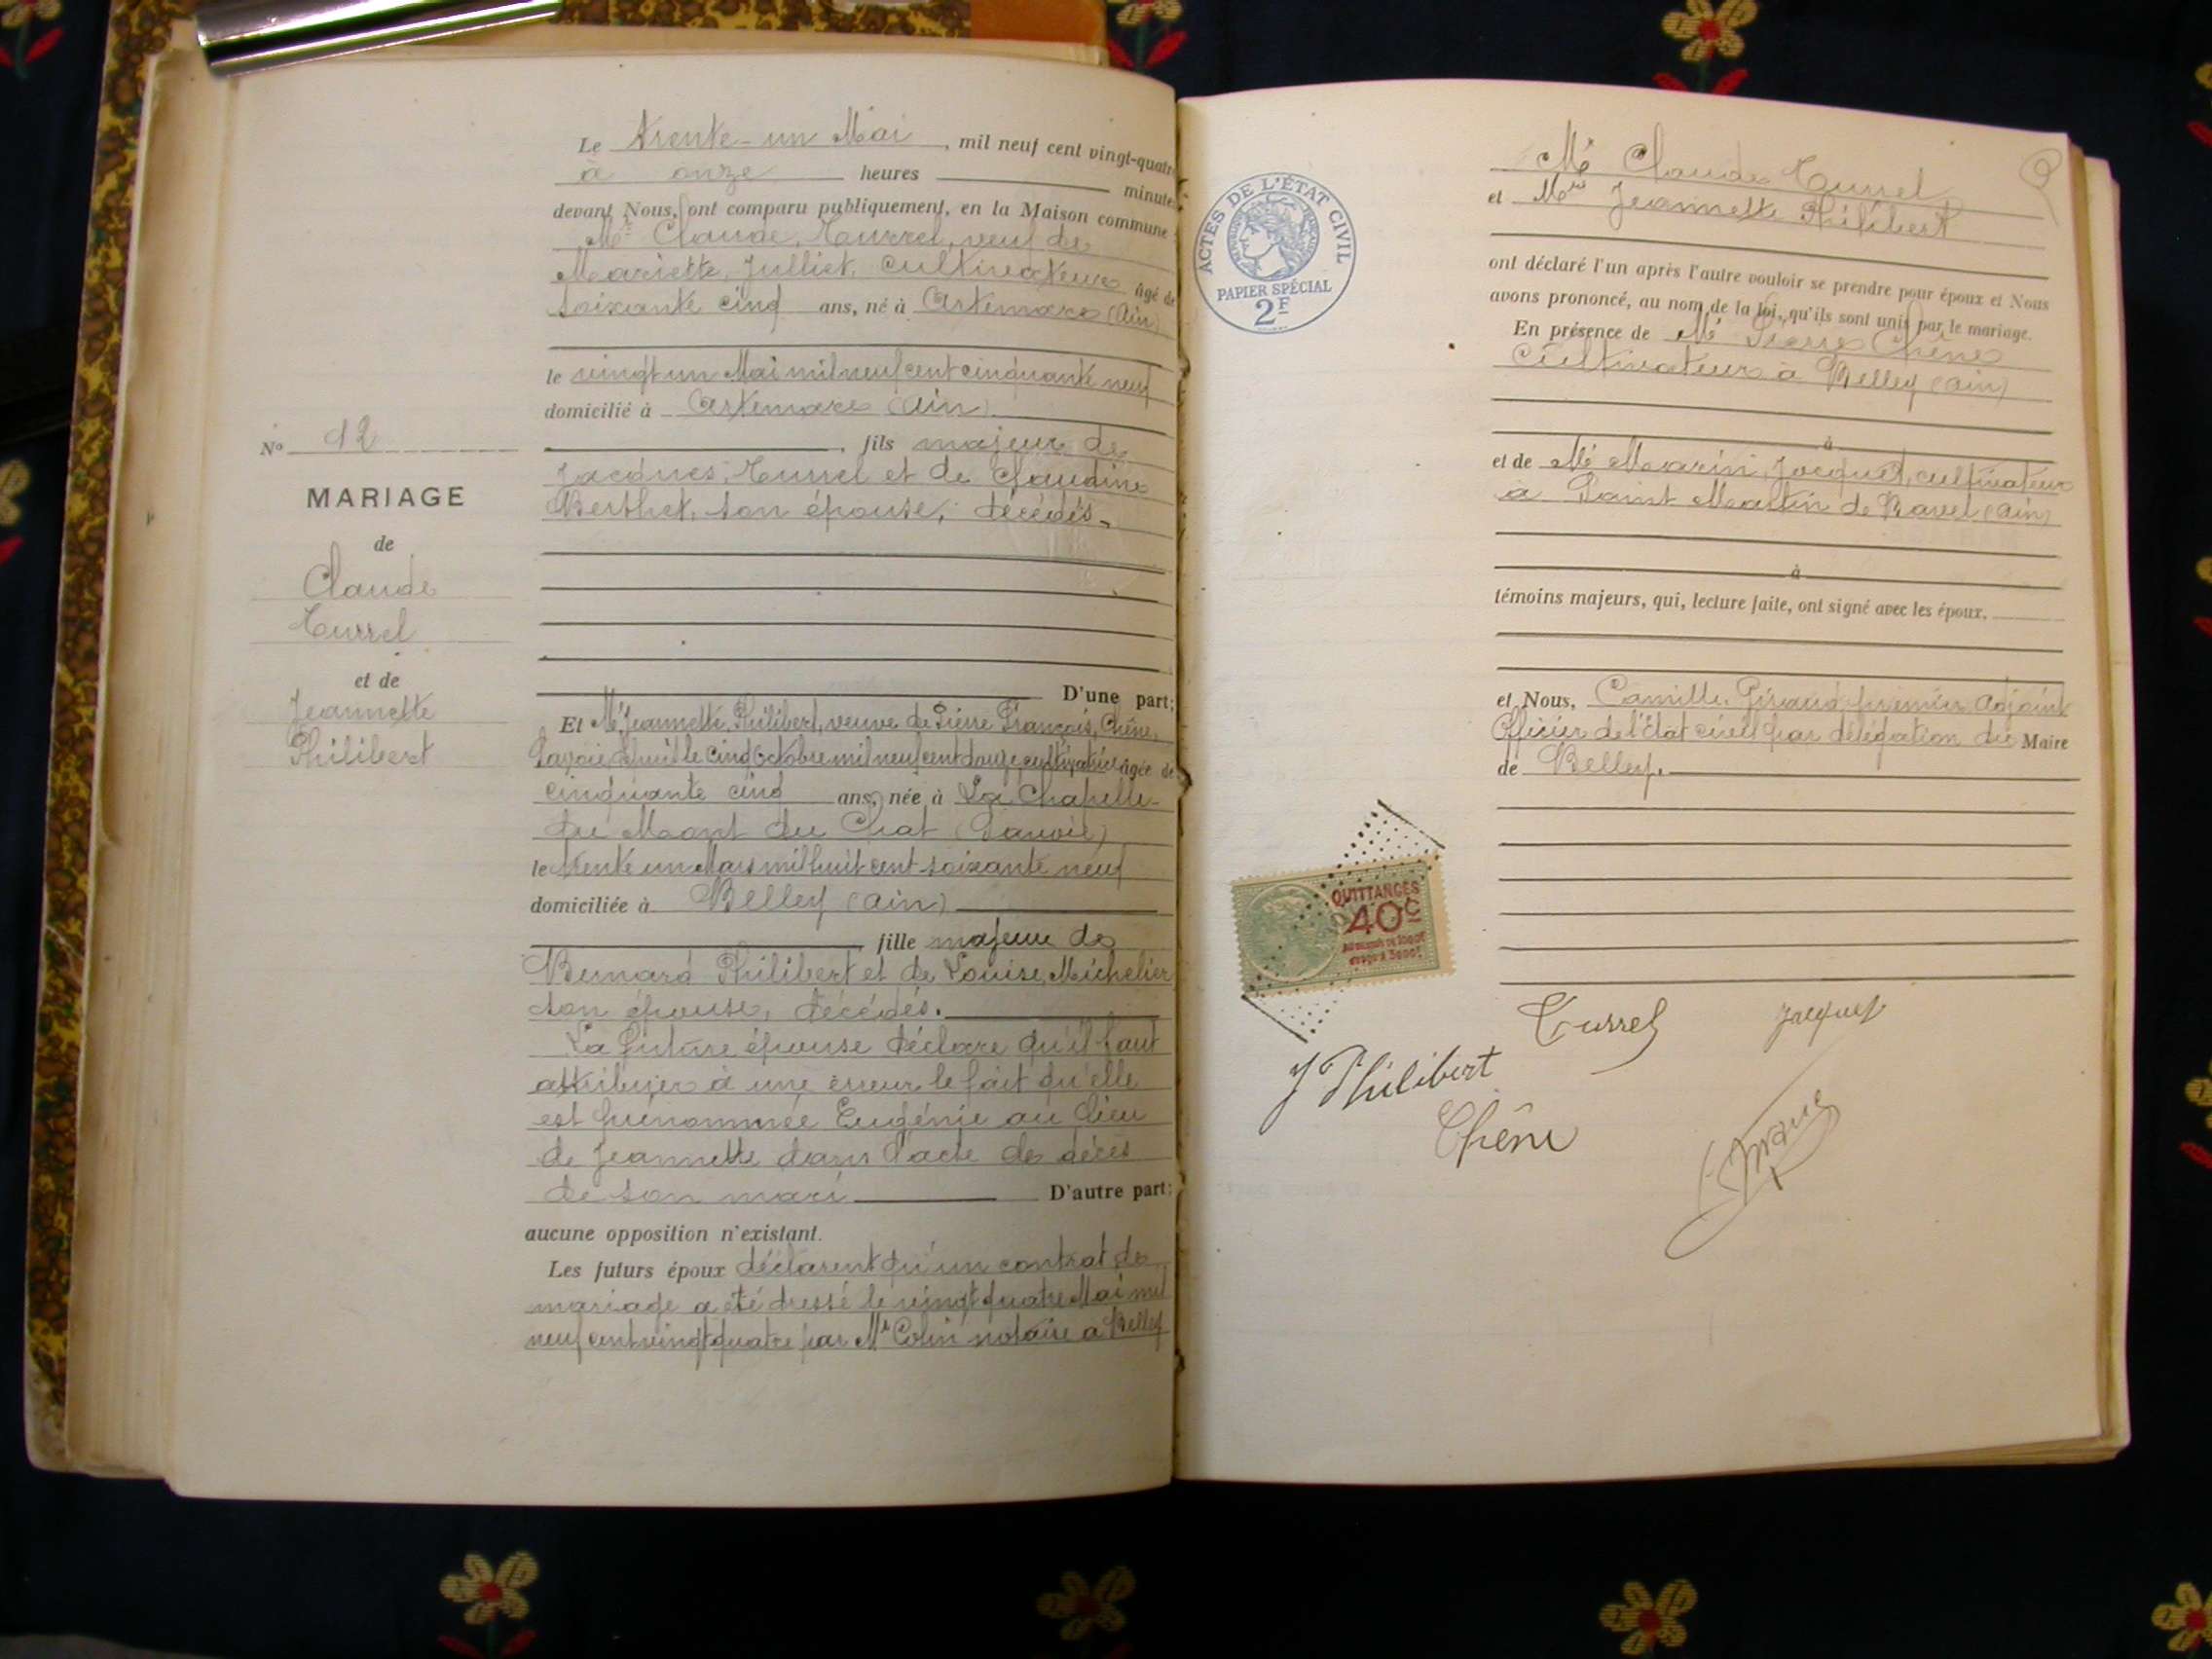 Le trente-un Mai, mil neuf cent vingt-quatre
à onze heures minutes
devant Nous, ont comparu publiquement, en la Maison commune :
Mr Claude, Turrel, veuf de
Mariette, Julliet, cultivateur âgé de
soixante cinq ans, né à Artemare (Ain)
le vingt un Mai mil neuf cent cinquante neuf
domicilié à Artemare (Ain)
, fils majeur de
Jacques, Turrel et de Claudine
Berthet, son épouse, décédés.
D'une part;
Et Me Jeannette, Philibert, veuve de Pierre François, Chêne,
depuis le cinq Octobre mil neuf cent douze, cultivatrice âgée de
cinquante cinq ans, née à La Chapelle-
du Mont du Chat (Savoie)
le trente un Mars mil huit cent soixante neuf
domiciliée à Belley (Ain)
, fille majeure de
Bernard Philibert et de Louise, Michelier
son épouse, décédés.
La future épouse déclare qu'il faut
attribuer à une erreur le fait qu'elle
est prénommée Eugénie au lieu
de Jeannette dans l'acte de décès
de son mari D'autre part:
aucune opposition n'existant.
Les futurs époux déclarent qu'un contrat de
mariage a été dressé le vingt quatre Mai mil
neuf cent vingt quatre par Me Colin notaire à Belley
No 12
MARIAGE
de
Claude
Turrel
et de
Jeannette
Philibert
ACTES DE L'ÉTAT CIVIL
PAPIER SPÉCIAL
2F
Mr Claude Turrel
et Me Jeannette Philibert
ont déclaré l'un après l'autre vouloir se prendre pour époux et Nous
avons prononcé, au nom de la loi, qu'ils sont unis par le mariage.
En présence de Mr Pierre Chêne
Cultivateur à Belley (Ain)
à
et de Mr Marin, Jacquet, cultivateur
à Saint Martin de Bavel (Ain)
à
témoins majeurs, qui, lecture faite, ont signé avec les époux.
et Nous, Camille, Giraud, premier Adjoint
Officier de l'État civil par délégation du Maire
de Belley.
QUITTANCES
40c
Turrel
Jacquet
J Philibert
Chêne